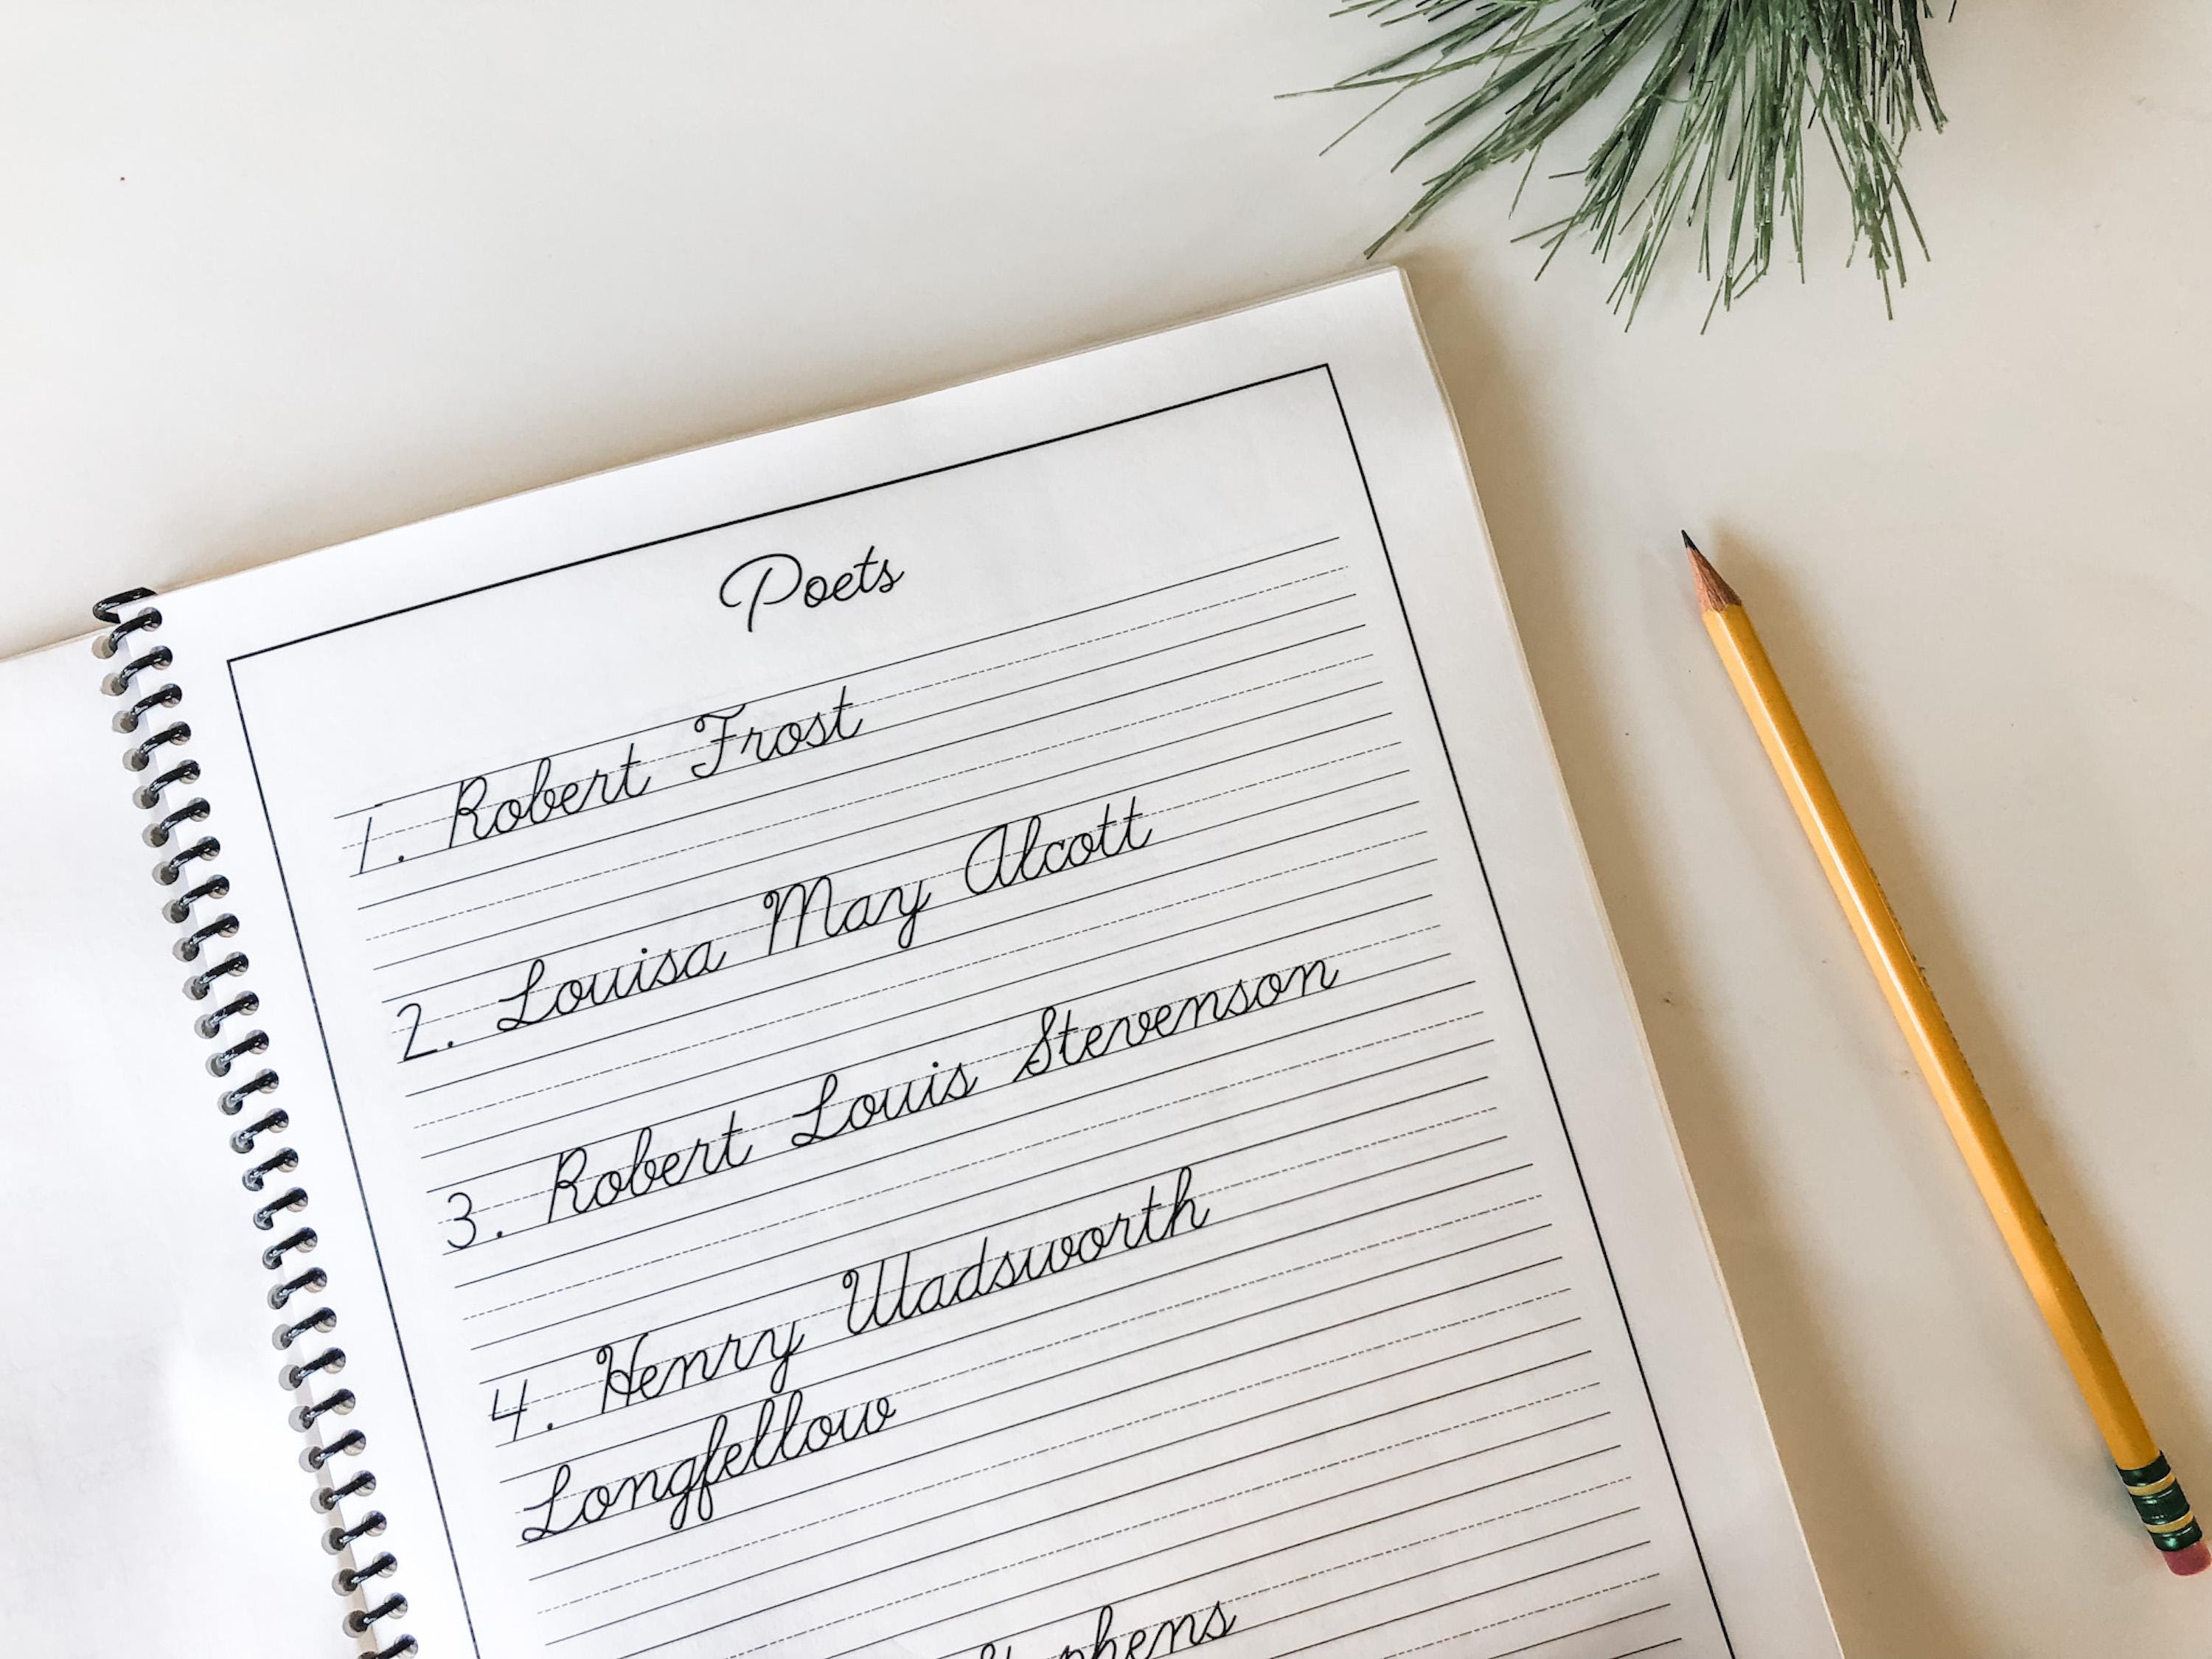 Poets
1. Robert Frost
2. Louisa May Alcott
3. Robert Louis Stevenson
4. Henry Wadsworth
Longfellow
Stephens